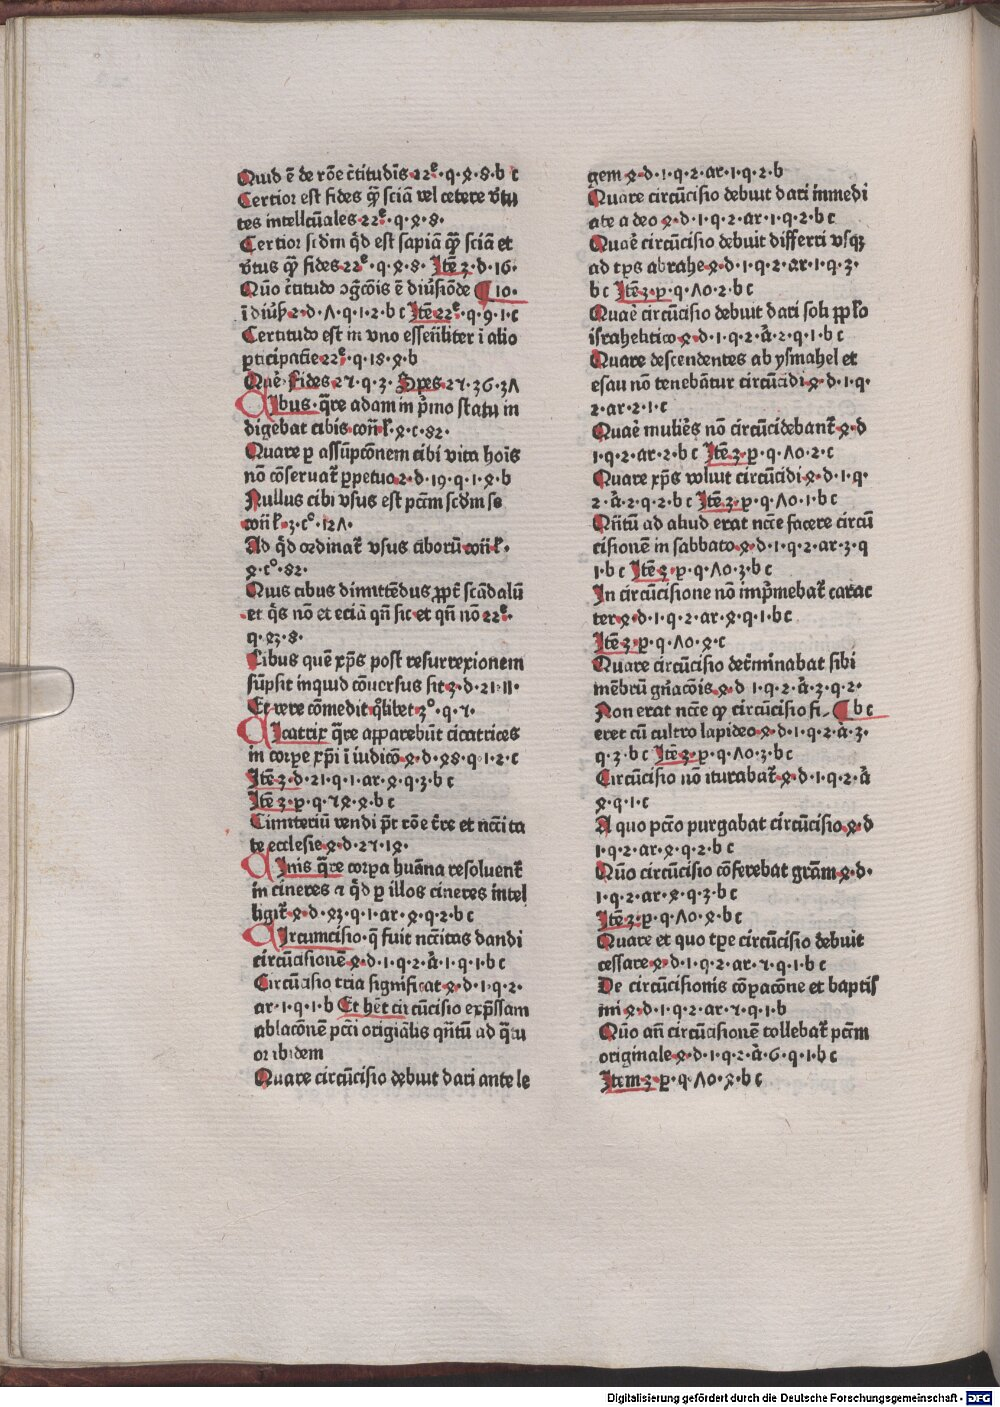 Quid ē de rōe c̄titudīs 22ͤ· q· 8· 8· b c
Certior est fides qȝ sciā vel cetere v̄tu
tes intellcūales 22ͤ· q· 4· 8·
Certior scdm q̄d est sapiā qȝ sciā et
v̄tus qȝ fides 22ͤ· q· 4· 8· Itē 3· d· 16·
Quō c̄titudo ē diūsiōde ¶ 10·
Certitudo est in vno essenliter ī alio
pticipatīe 22ͤ· q· 18· 4· b
Quē· Fides 27· q· 3· Spes 27· 36· 37
Cibus· q̄re adam in p̄mo statu in
digebat cibis con̄ł· 4· c· 82·
Quare p assūpcōnem cibi vita hoīs
nō cōseruat᷑ ppetuo 2· d· 19· q· 1· 4· b
Nullus cibi vsus est pctm̄ scdm se
con̄ł· 3· c°· 127·
Ad q̄d ordinat᷑ vsus ciborū con̄ł·
4· c°· 82·
Quis cibus dimittēdus ꝓpt̄ scādalū
et q̄s nō et eciā qn̄ sic et qn̄ nō 22ͤ·
q· 43· 8·
Cibus quē xp̄s post resurrexionem
sūpsit inquid cōuersus sit 3· d· 21· 11·
Et vere cōmedit q̄libet 3°· q· 7·
Cicatrix q̄re apparebūt cicatrices
in corpe xp̄i ī iudicō 4· d· 48· q· 1· 2· c
Itē 3· d· 21· q· 1· ar· 4· q· 3· b c
Itē 3· p· q· 54· 4· b c
Cimiteriū vendi pt̄ rōe t̄re et nctī ta
te ecclesie 4· d· 25· 14·
Cinis q̄re corpa huāna resoluent᷑
in cineres ⁊ q̄d p illos cineres intel
ligit᷑ 4· d· 43· q· 1· ar· 4· q· 2· b c
Circumcisio· q̄ fuit nctītas dandi
circūcisionē 4· d· 1· q· 2· ā· 1· q· 1· b c
Circūcisio tria significat 4· d· 1· q· 2·
ar· 1· q· 1· b Et het cir cūcisio exp̄ssam
ablacōnē pctī origiālis qn̄tū ad q̄tu
or ibidem
Quare circūcisio debuit dari ante le
gem 4· d· 1· q· 2· ar· 1· q· 2· b
Quare circūcisio debuit dari inmedi
ate a deo 4· d· 1· q· 2· ar· 1· q· 2· b c
Quaē circūcisio debuit differri vsqȝ
ad tp̄s abrahe 4· d· 1· q· 2· ar· 1· q· 3·
b c Itē 3· p· q· 70· 2· b c
Quaē circūcisio debuit dari soli pplo
israhelitico 4· d· 1· q· 2· ā· 2· q· 1· b c
Quare descendentes ab ysmahel et
esau nō tenebātur circūcidi 4· d· 1· q·
2· ar· 2· 1· c
Quaē muliēs nō circūcidebant᷑ 4· d
1· q· 2· ar· 2· b c Itē 3· p· q· 70· 2· c
Quare xp̄s voluit circūcidi 4· d· 1· q·
2· ā· 2· q· 2· b c Itē 3· p· q· 70· 1· b c
Qn̄tū ad aliud erat nctē facere circū
cisionē in sabbato 4· d· 1· q· 2· ar· 3· q
1· b c Itē 3· p· q· 70· 3· b c
In circūcisione nō imp̄mebat᷑ carac
ter 4· d· 1· q· 2· ar· 4· q· 1· b c
Itē 3· p· q· 70· 4· c
Quare circūcisio det̄minabat sibi
mēbrū gn̄acōis 4· d 1· q· 2· ā· 3· q· 2·
Non erat nctē qȝ circūcisio fi ¶ b c
eret cū cultro lapideo 4· d· 1· q· 2· ā· 3·
q· 3· b c Itē 3· p· q· 70· 3· b c
Circūcisio nō iturabat᷑ 4· d· 1· q· 2· ā
4· q· 1· c
A quo pctō purgabat circūcisio 4· d
1· q· 2· ar· 4· q· 2· b c
Quō circūcisio cōferebat grām 4· d·
1· q· 2· ar· 4· q· 3· b c
Itē 3· p· q· 70· 4· b c
Quare et quo tpe circūcisio debuit
cessare 4· d· 1· q· 2· ar· 5· q· 1· b c
De circūcisionis cōpacōne et baptis
mi 4· d· 1· q· 2· ar· 5· q· 1· b
Quō an̄ circūcisionē tollebat᷑ pctm̄
originale 4· d· 1· q· 2· ā· 6· q· 1· b c
Item 3· p· q· 70· 4· b c
Digitalisierung gefördert durch die Deutsche Forschungsgemeinschaft - DFG